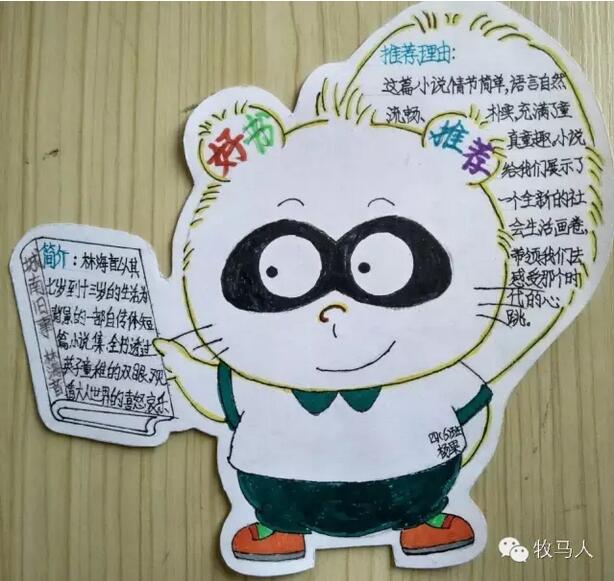 推荐理由:
这篇小说情节简单,语言自然
流畅、朴实,充满了童
真童趣。小说
给我们展示了
一个全新的社
会生活画卷,
带领我们去
感受那个时
代的心
跳。
好书
推荐
城南旧事 林海音
简介:林海音以其
七岁到十三岁的生活为
背景的一部自传体短
篇小说集,全书透过
英子童稚的双眼,观
看大人世界的喜怒哀乐
四(6)班
杨果
牧马人